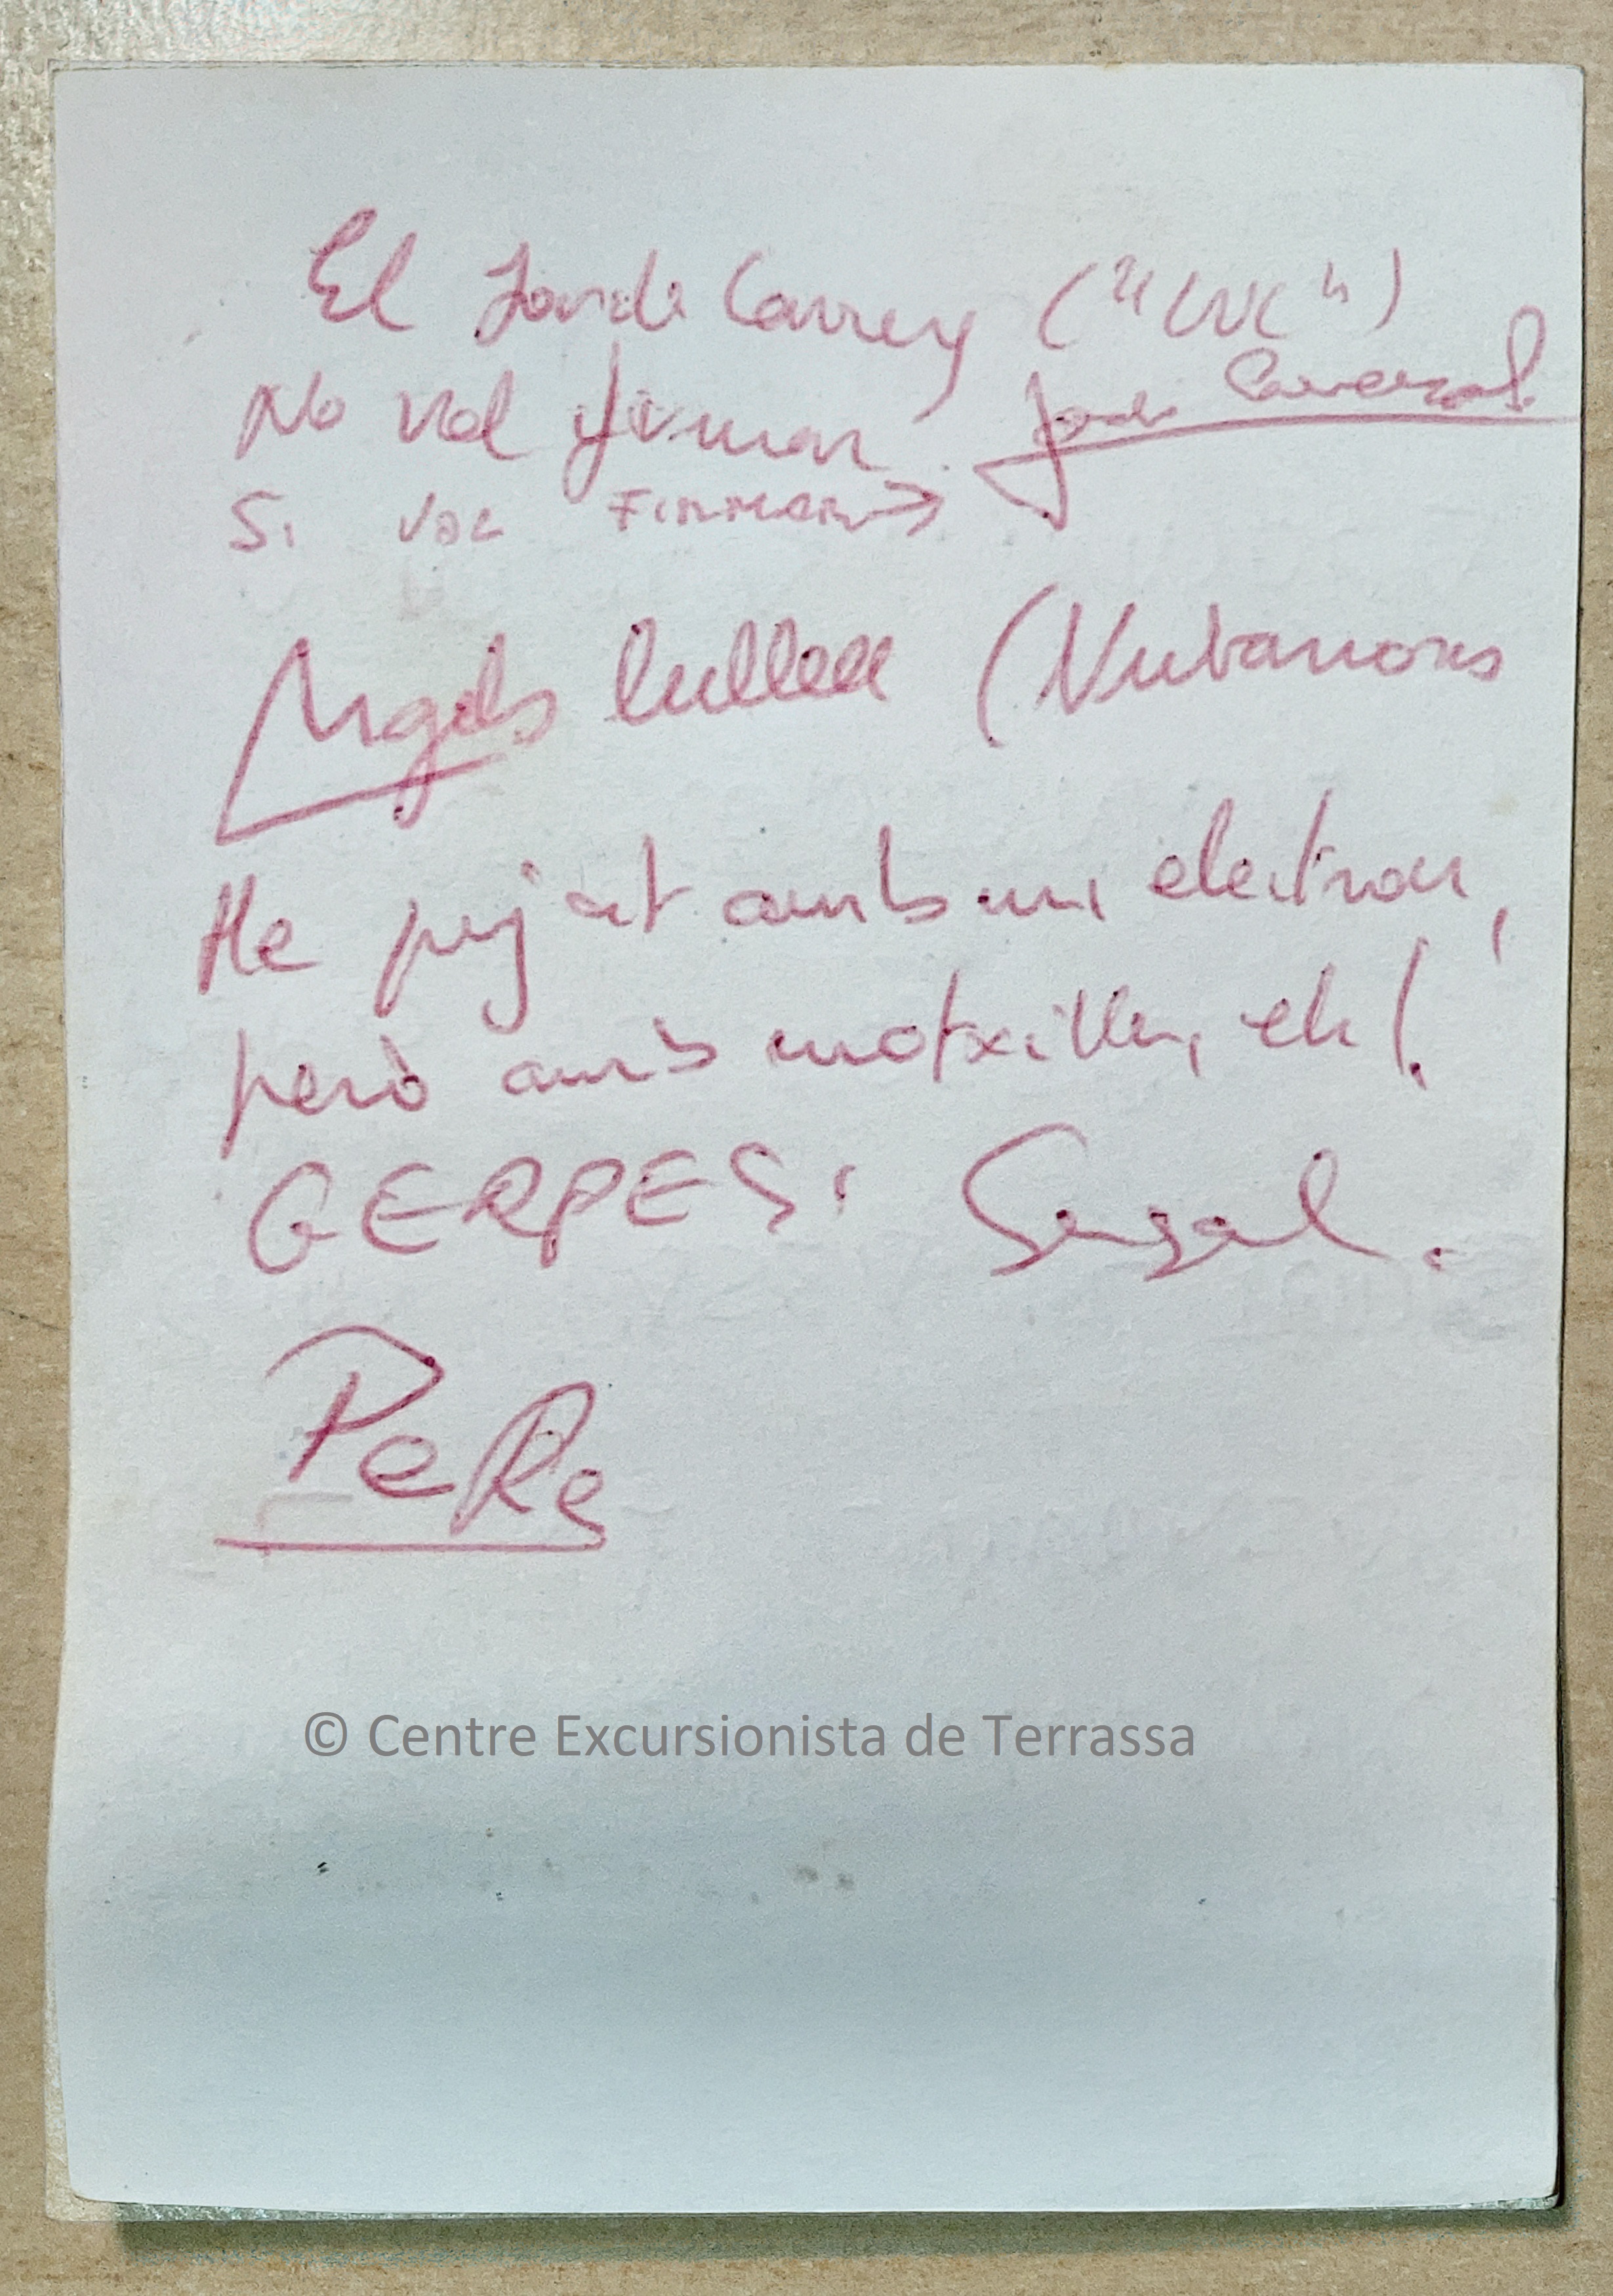 El Jordi Carrey ("LUC")
No vol firmar. Jordi
Si VOL FIRMAR →
Àngels (
He pujat amb un electron,
però amb motxilla, eh!
GERPES!
PeRe
© Centre Excursionista de Terrassa